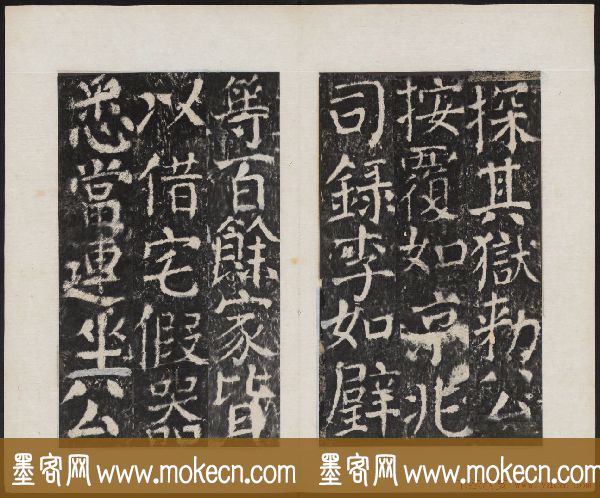 探其獄勅公
按覆如京兆
司錄李如璧
等百餘家皆
以借宅假器
悉當連坐公
墨客网www.mokecn.com 墨客网www.mokecn.com